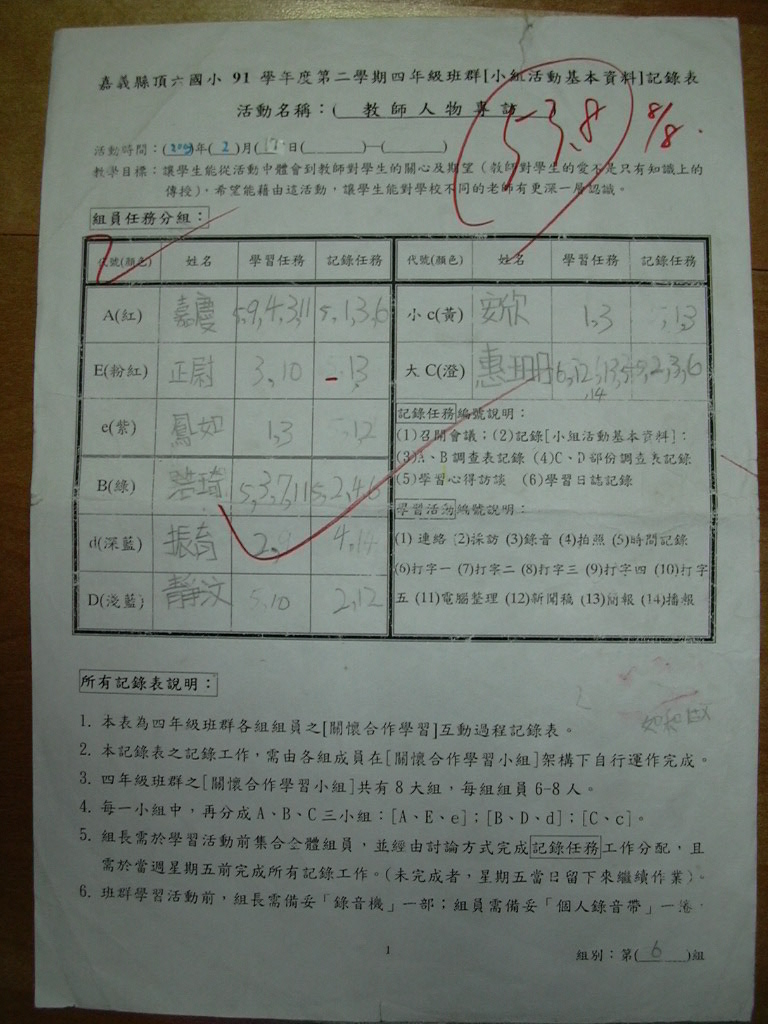 嘉義縣頂六國小 91 學年度第二學期四年級班群[小組活動基本資料]記錄表
活動名稱：( 教師人物專訪 )
53.8
8/8
活動時間：( )年( 2 )月( )日( )—( )
教學目標：讓學生能從活動中體會到教師對學生的關心及期望（教師對學生的愛不是只有知識上的
傳授），希望能藉由這活動，讓學生能對學校不同的老師有更深一層認識。
組員任務分組：
代號(顏色) 姓名 學習任務 記錄任務 代號(顏色) 姓名 學習任務 記錄任務
A(紅) 嘉慶 5,9,4,3,11 5,1,3,6 小 c(黃) 安欣 1,3 ,13
E(粉紅) 正尉 3,10 13 大 C(澄) 惠珊 6,12,13,5,9,2,3,6
,14
e(紫) 鳳如 1,3 ,12
B(綠) 琦 5,3,7,11 5,2,4,6
d(深藍) 振育 2,9 4,14
D(淺藍) 靜汶 5,10 2,12
記錄任務編號說明：
(1)召開會議；(2)記錄[小組活動基本資料]：
(3)A、B 調查表記錄 (4)C、D 部份調查表記錄
(5)學習心得訪談 (6)學習日誌記錄
學習活動編號說明：
(1) 連絡 (2)採訪 (3)錄音 (4)拍照 (5)時間記錄
(6)打字一 (7)打字二 (8)打字三 (9)打字四 (10)打字
五 (11)電腦整理 (12)新聞稿 (13)簡報 (14)播報
所有記錄表說明：
1. 本表為四年級班群各組組員之[關懷合作學習]互動過程記錄表。
2. 本記錄表之記錄工作，需由各組成員在[關懷合作學習小組]架構下自行運作完成。
3. 四年級班群之[關懷合作學習小組]共有 8 大組，每組組員 6-8 人。
4. 每一小組中，再分成 A、B、C 三小組：[A、E、e]；[B、D、d]；[C、c]。
5. 組長需於學習活動前集合全體組員，並經由討論方式完成記錄任務工作分配，且
需於當週星期五前完成所有記錄工作。(未完成者，星期五當日留下來繼續作業)。
6. 班群學習活動前，組長需備妥「錄音機」一部；組員需備妥「個人錄音帶」一捲
1
組別：第( 6 )組